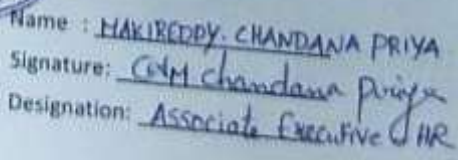 Name : MAKIREDDY. CHANDANA PRIYA
Signature: Chandana priya
Designation: Associate Executive HR